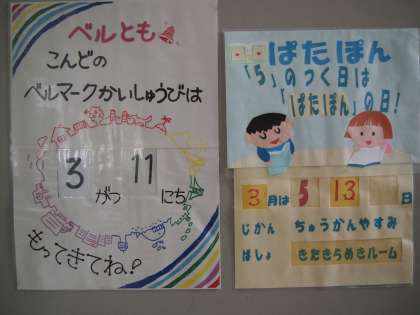 ベルとも
こんどの
ベルマークかいしゅうびは
3がつ11にち
もってきてね!
ぱたぽん
「5」のつく日は
「ぱたぽん」の日!
3月は5 13日
じかん ちゅうかんやすみ
ばしょ きたきらめきルーム